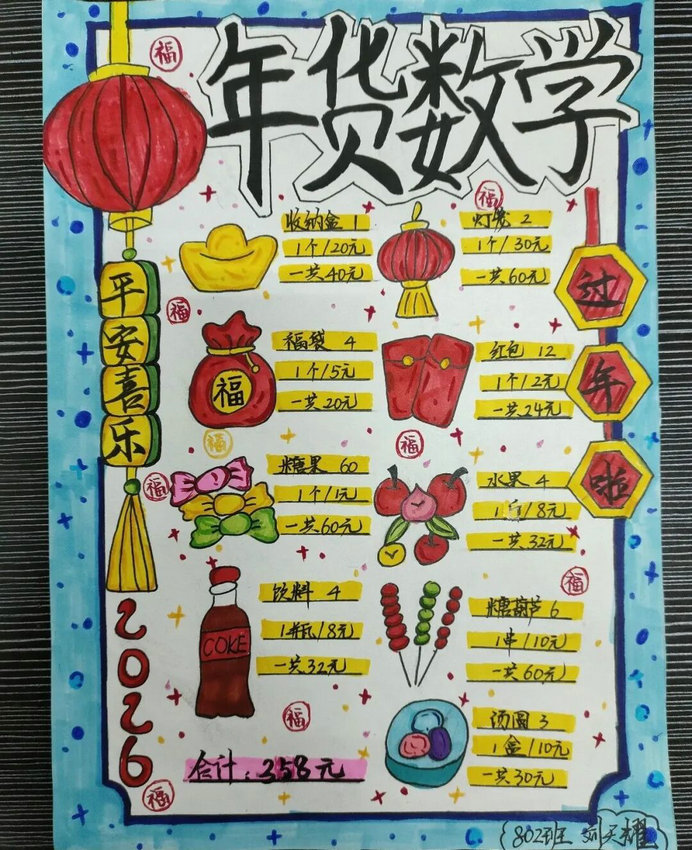 年货数学
福
平安喜乐
2026
过年啦
收纳盒 1
1个/20元
一共40元
灯笼 2
1个/30元
一共60元
福
福
福
福袋 4
1个/5元
一共20元
红包 12
1个/2元
一共24元
福
福
福
糖果 60
1个/1元
一共60元
水果 4
1斤/8元
一共32元
福
饮料 4
1瓶/8元
一共32元
COKE
糖葫芦 6
1串/10元
一共60元
福
汤圆 3
1盒/10元
一共30元
合计：358元
福
802班 刘天耀